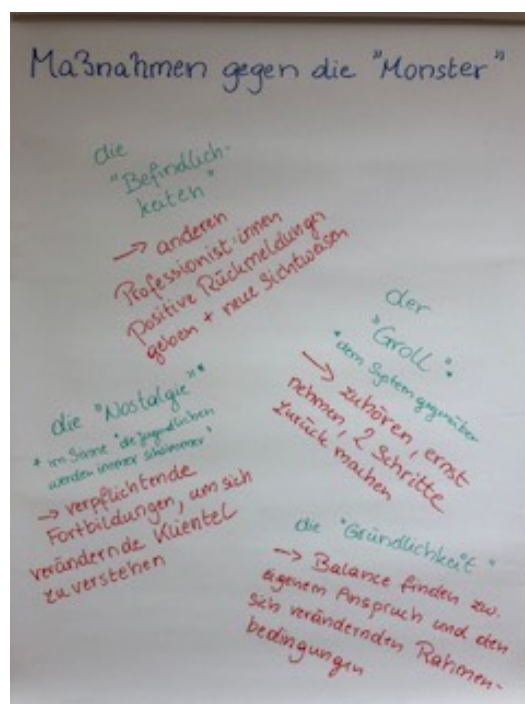 Maßnahmen gegen die "Monster"
die
"Befindlich-
keiten"
→ anderen
Professionist:innen
Positive Rückmeldungen
geben + neue Sichtweisen
der
"Groll"*
*dem System gegenüber
→ zuhören, ernst
nehmen, 2 Schritte
zurück machen
die "Nostalgie"*
* im Sinne "die Jugendlichen
werden immer schlimmer"
→ verpflichtende
Fortbildungen, um sich
verändernde Klientel
zu verstehen
die "Gründlichkeit"
→ Balance finden zw.
eigenem Anspruch und den
sich verändernden Rahmen-
bedingungen